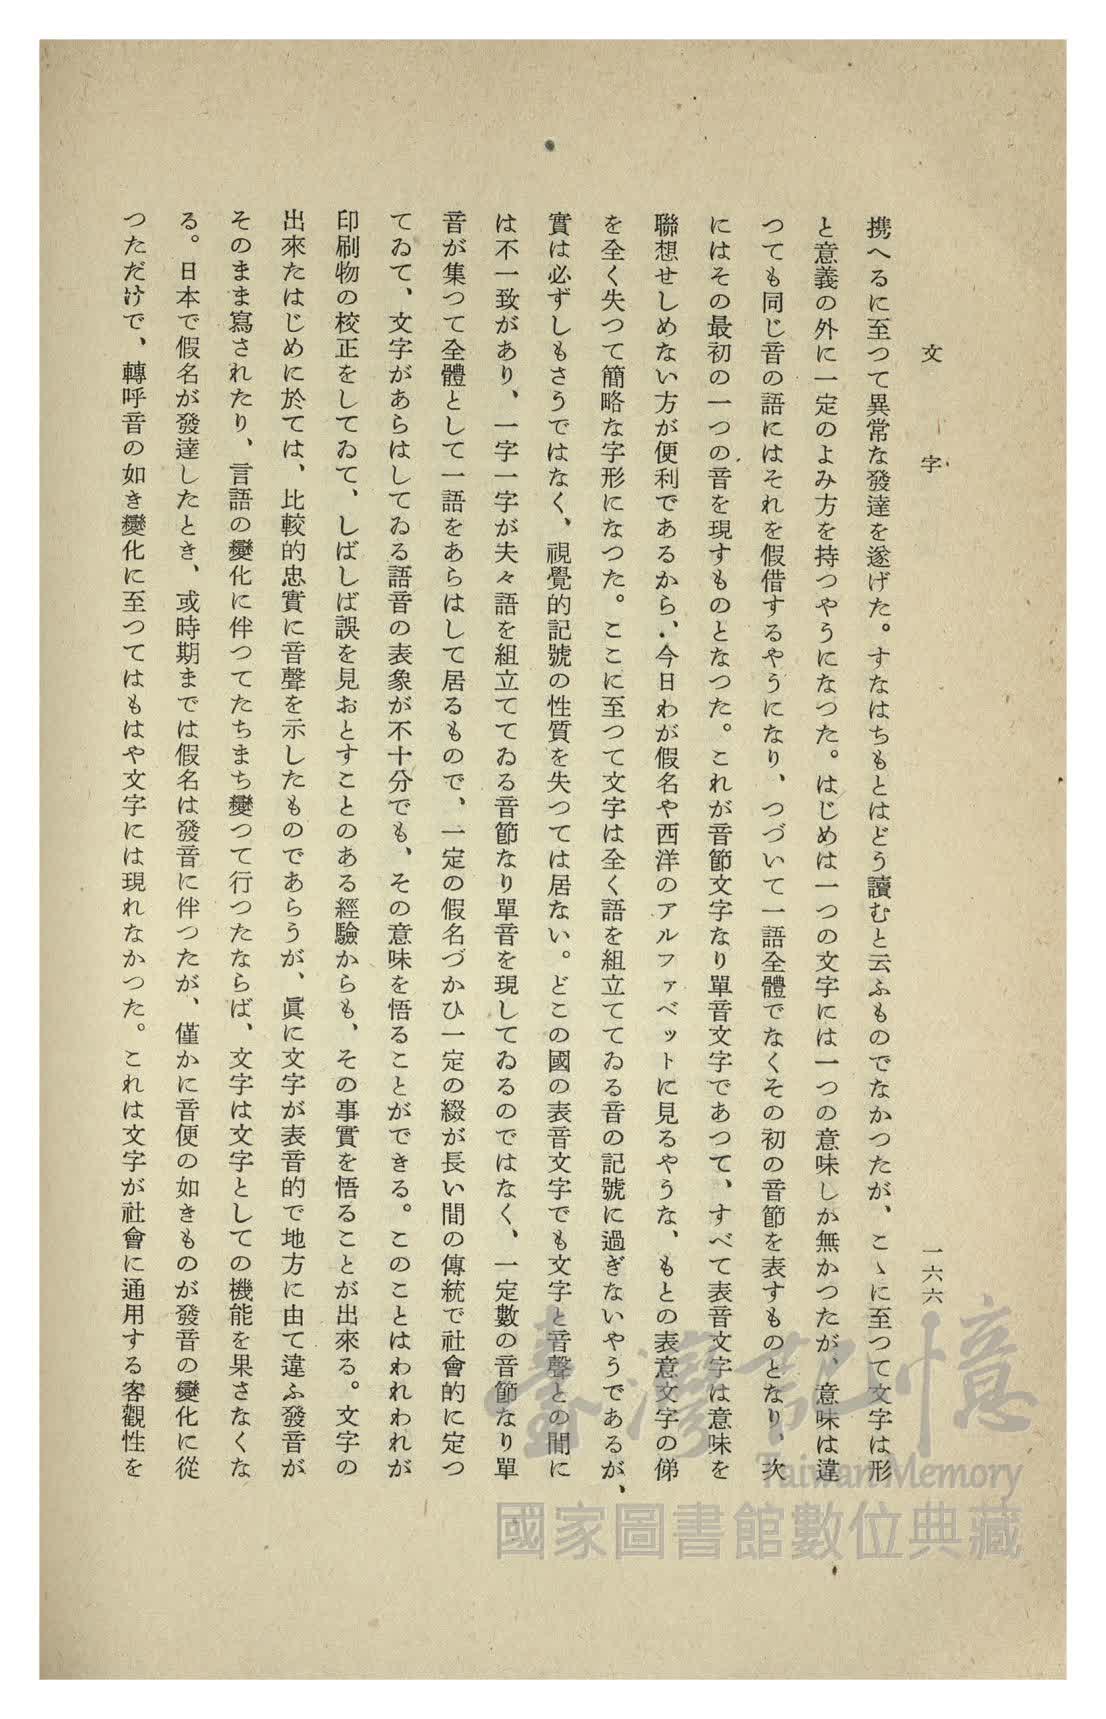 文字
一六六
携へるに至つて異常な發達を遂げた。すなはちもとはどう讀むと云ふものでなかつたが、こゝに至つて文字は形
と意義の外に一定のよみ方を持つやうになつた。はじめは一つの文字には一つの意味しか無かつたが、意味は違
つても同じ音の語にはそれを假借するやうになり、つづいて一語全體でなくその初の音節を表すものとなり、次
にはその最初の一つの音を現すものとなつた。これが音節文字なり單音文字であつて、すべて表音文字は意味を
聯想せしめない方が便利であるから、今日わが假名や西洋のアルファベットに見るやうな、もとの表意文字の俤
を全く失つて簡略な字形になつた。ここに至つて文字は全く語を組立ててゐる音の記號に過ぎないやうであるが、
實は必ずしもさうではなく、視覺的記號の性質を失つては居ない。どこの國の表音文字でも文字と音聲との間に
は不一致があり、一字一字が夫々語を組立ててゐる音節なり單音を現してゐるのではなく、一定數の音節なり單
音が集つて全體として一語をあらはして居るもので、一定の假名づかひ一定の綴が長い間の傳統で社會的に定つ
てゐて、文字があらはしてゐる語音の表象が不十分でも、その意味を悟ることができる。このことはわれわれが
印刷物の校正をしてゐて、しばしば誤を見おとすことのある經驗からも、その事實を悟ることが出來る。文字の
出來たはじめに於ては、比較的忠實に音聲を示したものであらうが、眞に文字が表音的で地方に由て違ふ發音が
そのまま寫されたり、言語の變化に伴つてたちまち變つて行つたならば、文字は文字としての機能を果さなくな
る。日本で假名が發達したとき、或時期までは假名は發音に伴つたが、僅かに音便の如きものが發音の變化に從
つただけで、轉呼音の如き變化に至つてはもはや文字には現れなかつた。これは文字が社會に通用する客觀性を
臺灣記憶
Taiwan Memory
國家圖書館數位典藏